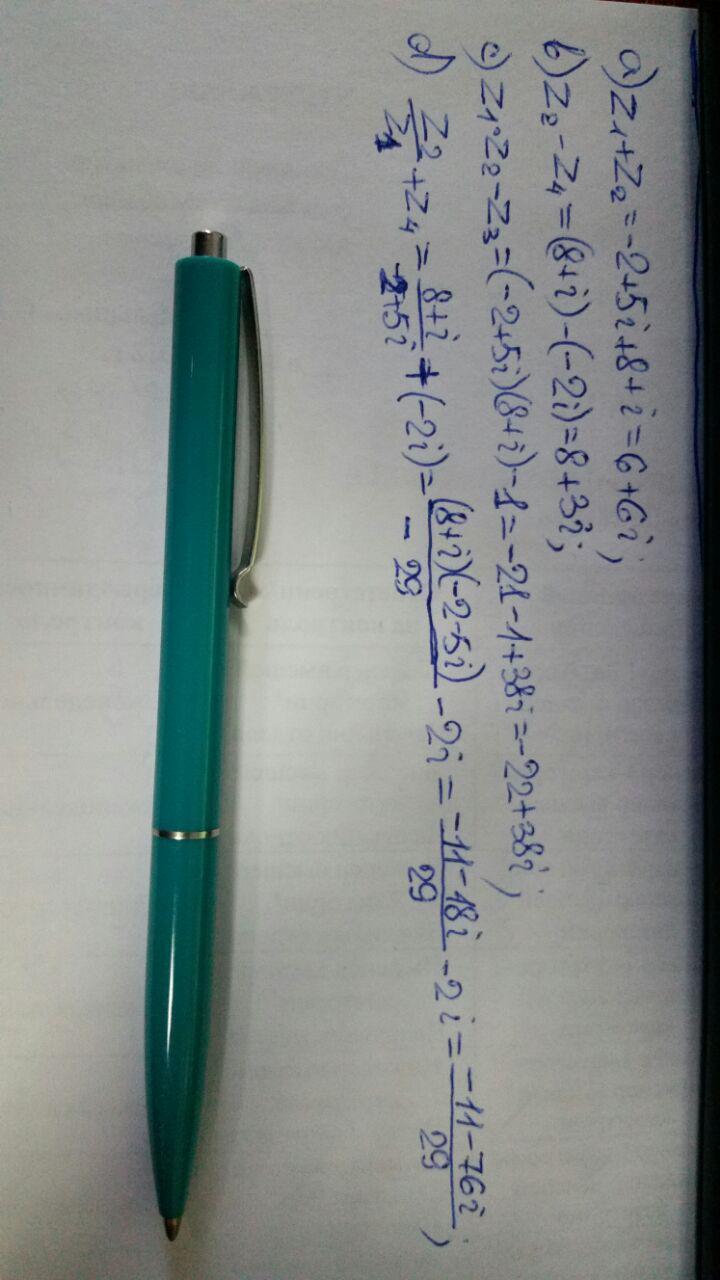 a) z₁+z₂=-2+5i+8+i=6+6i;
b) z₂-z₄=(8+i)-(-2i)=8+3i;
c) z₁·z₂-z₃=(-2+5i)(8+i)-1=-21-1+38i=-22+38i;
d) z₂/z₁+z₄=(8+i)/(-2+5i)+(-2i)=(8+i)(-2-5i)/29-2i=(-11-18i)/29-2i=(-11-76i)/29;